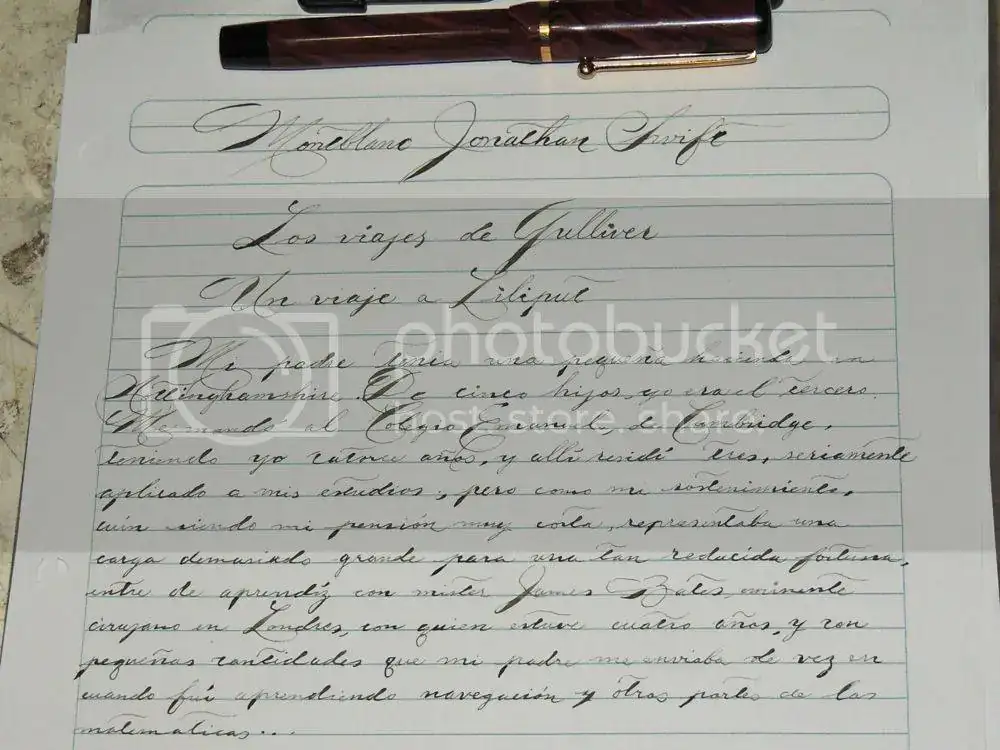 Monteblanc Jonathan Swift
Los viajes de Gulliver
Un viaje a Liliput
Mi padre tenía una pequeña hacienda en
Nottinghamshire. De cinco hijos, yo era el tercero.
Me mandó al Colegio Emanuel, de Cambridge,
teniendo yo catorce años, y allí residí tres, seriamente
aplicado a mis estudios; pero como mi sostenimiento,
aún siendo mi pensión muy corta, representaba una
carga demasiado grande para una tan reducida fortuna,
entré de aprendíz con mister James Bates, eminente
cirujano en Londres, con quien estuve cuatro años, y con
pequeñas cantidades que mi padre me enviaba de vez en
cuando fuí aprendiendo navegación y otras partes de las
matemáticas...
photobucket
host. store. share.